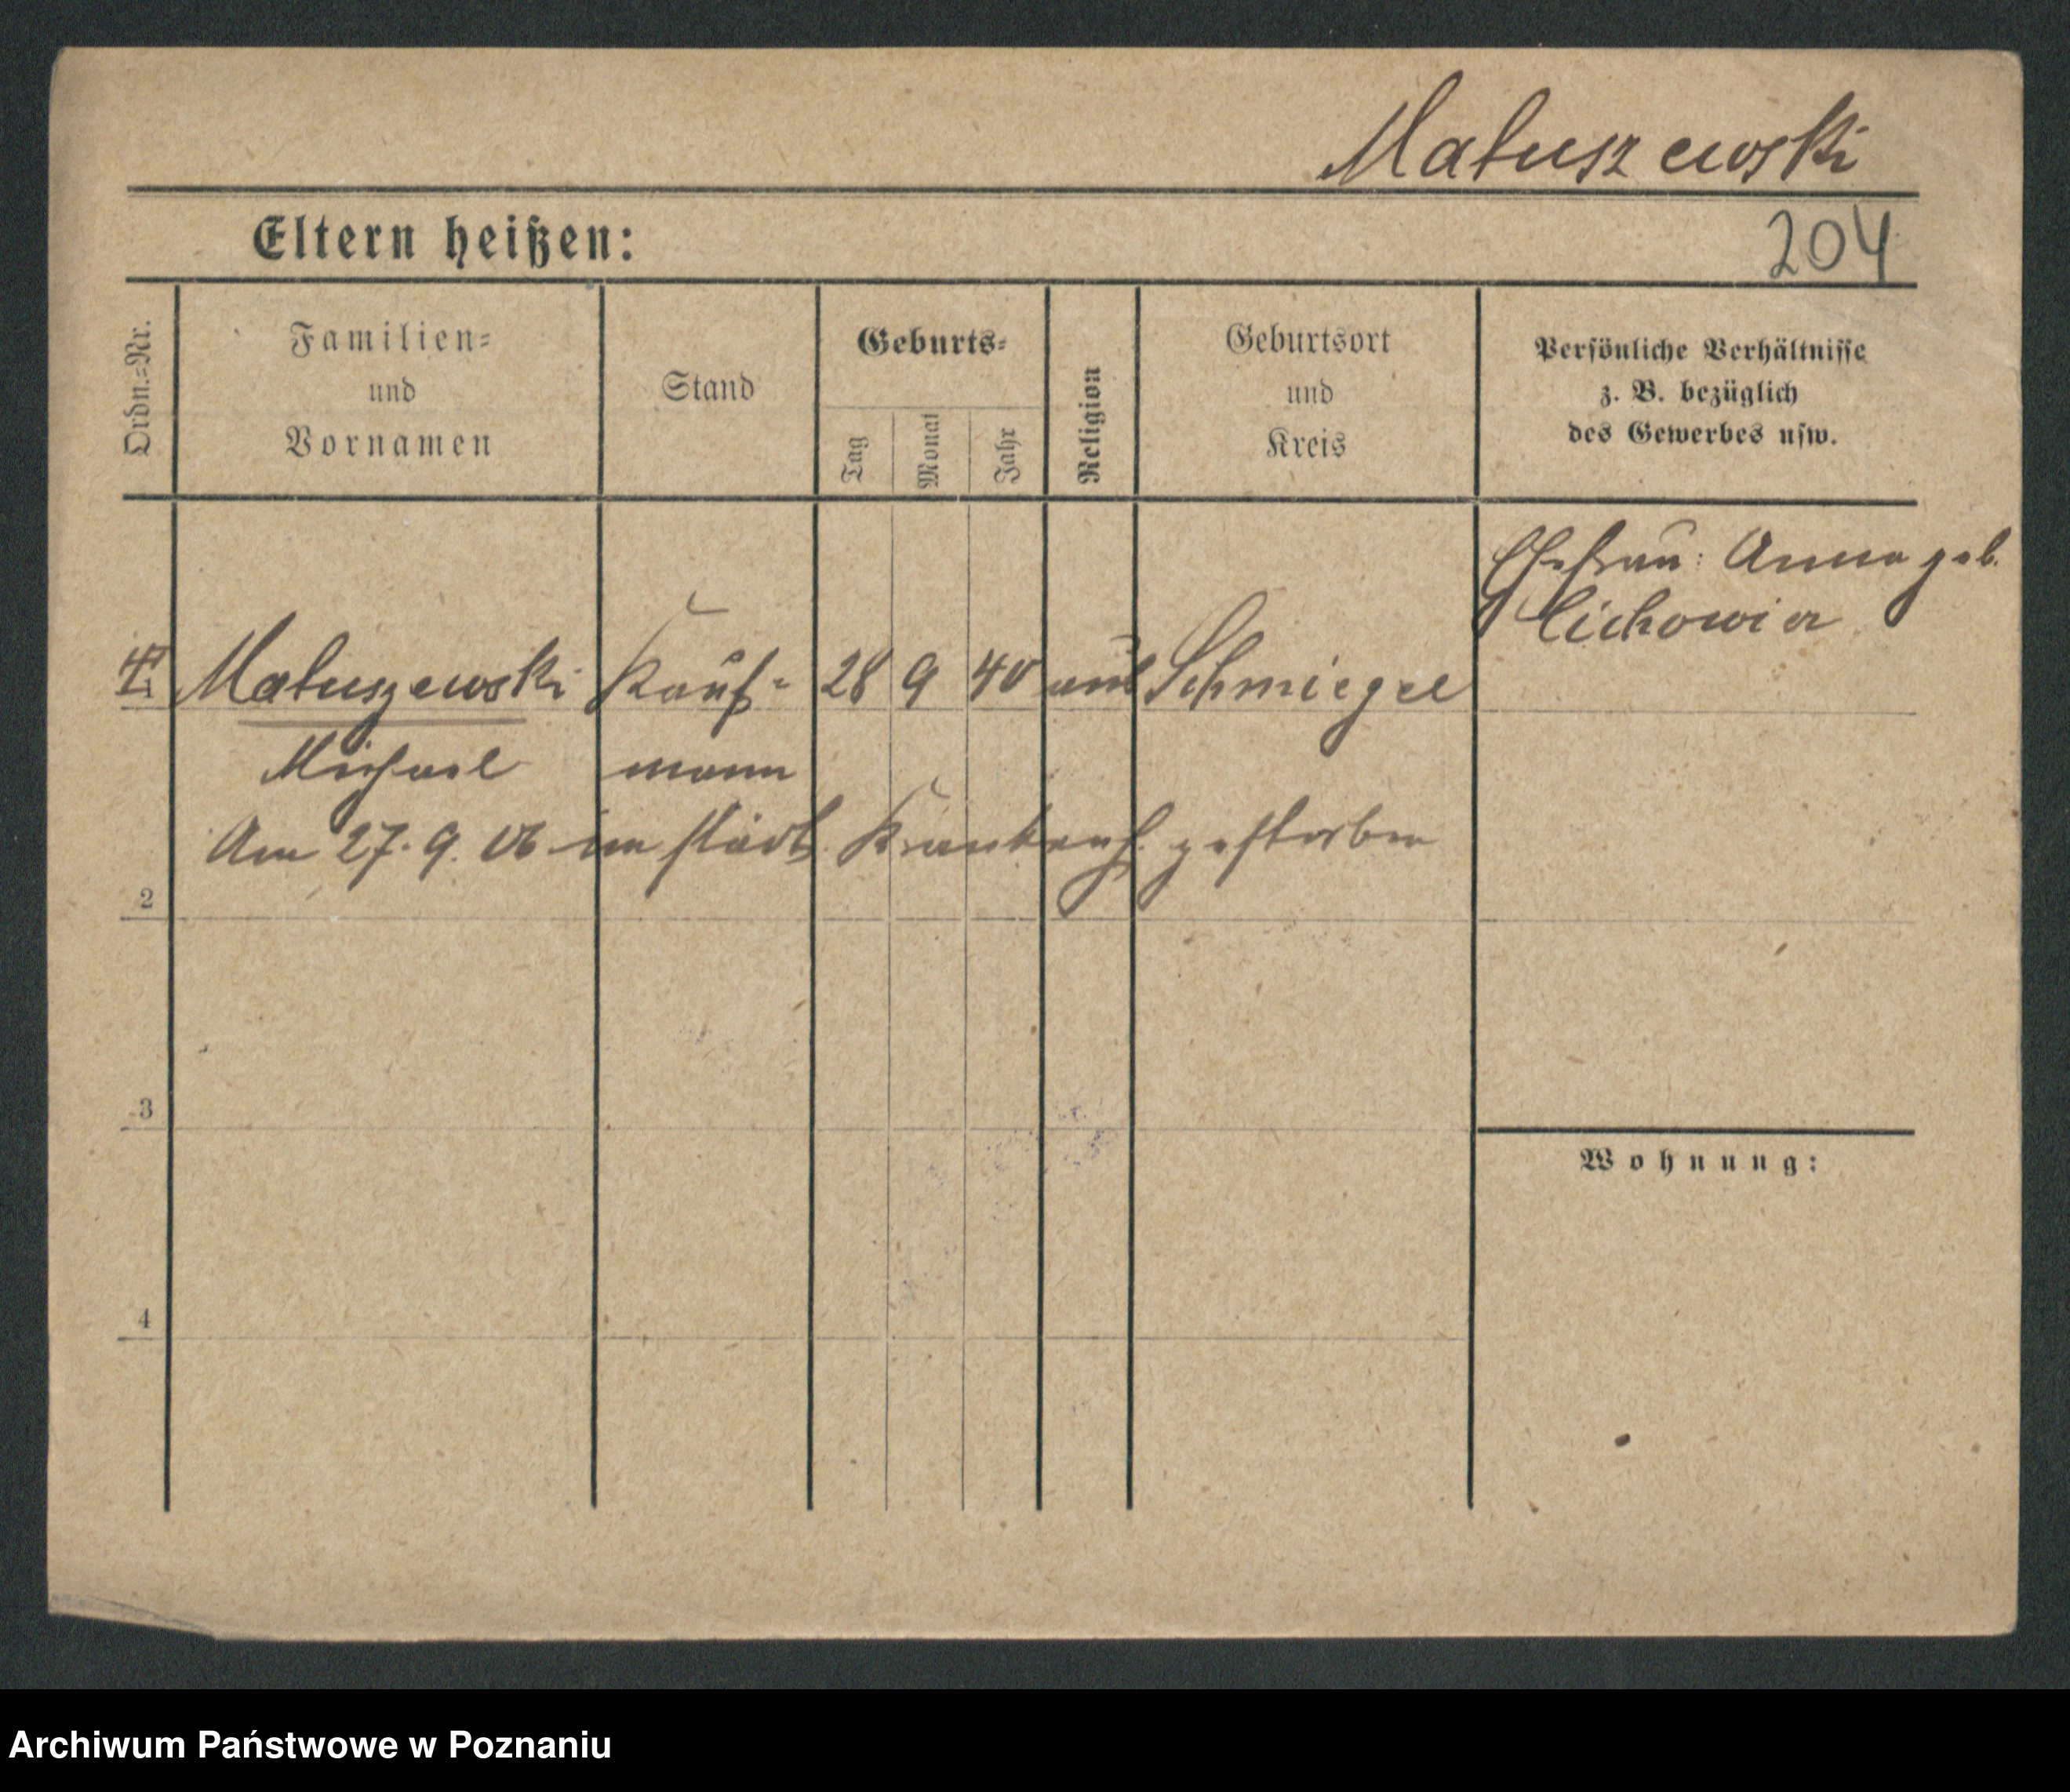 Matuszewski
Eltern heißen:
204
Ordn.-Nr.
Familien-
und
Vornamen
Stand
Geburts-
Tag
Monat
Jahr
Religion
Geburtsort
und
Kreis
Persönliche Verhältnisse
z. B. bezüglich
des Gewerbes usw.
Ehefrau: Anna geb.
Cichowicz
1 Matuszewski Kauf- 28 9 40 Schmiegel
Michael mann
Am 27. 9. 06 im städt. Krankenh. gestorben
2
3
Wohnung:
4
Archiwum Państwowe w Poznaniu